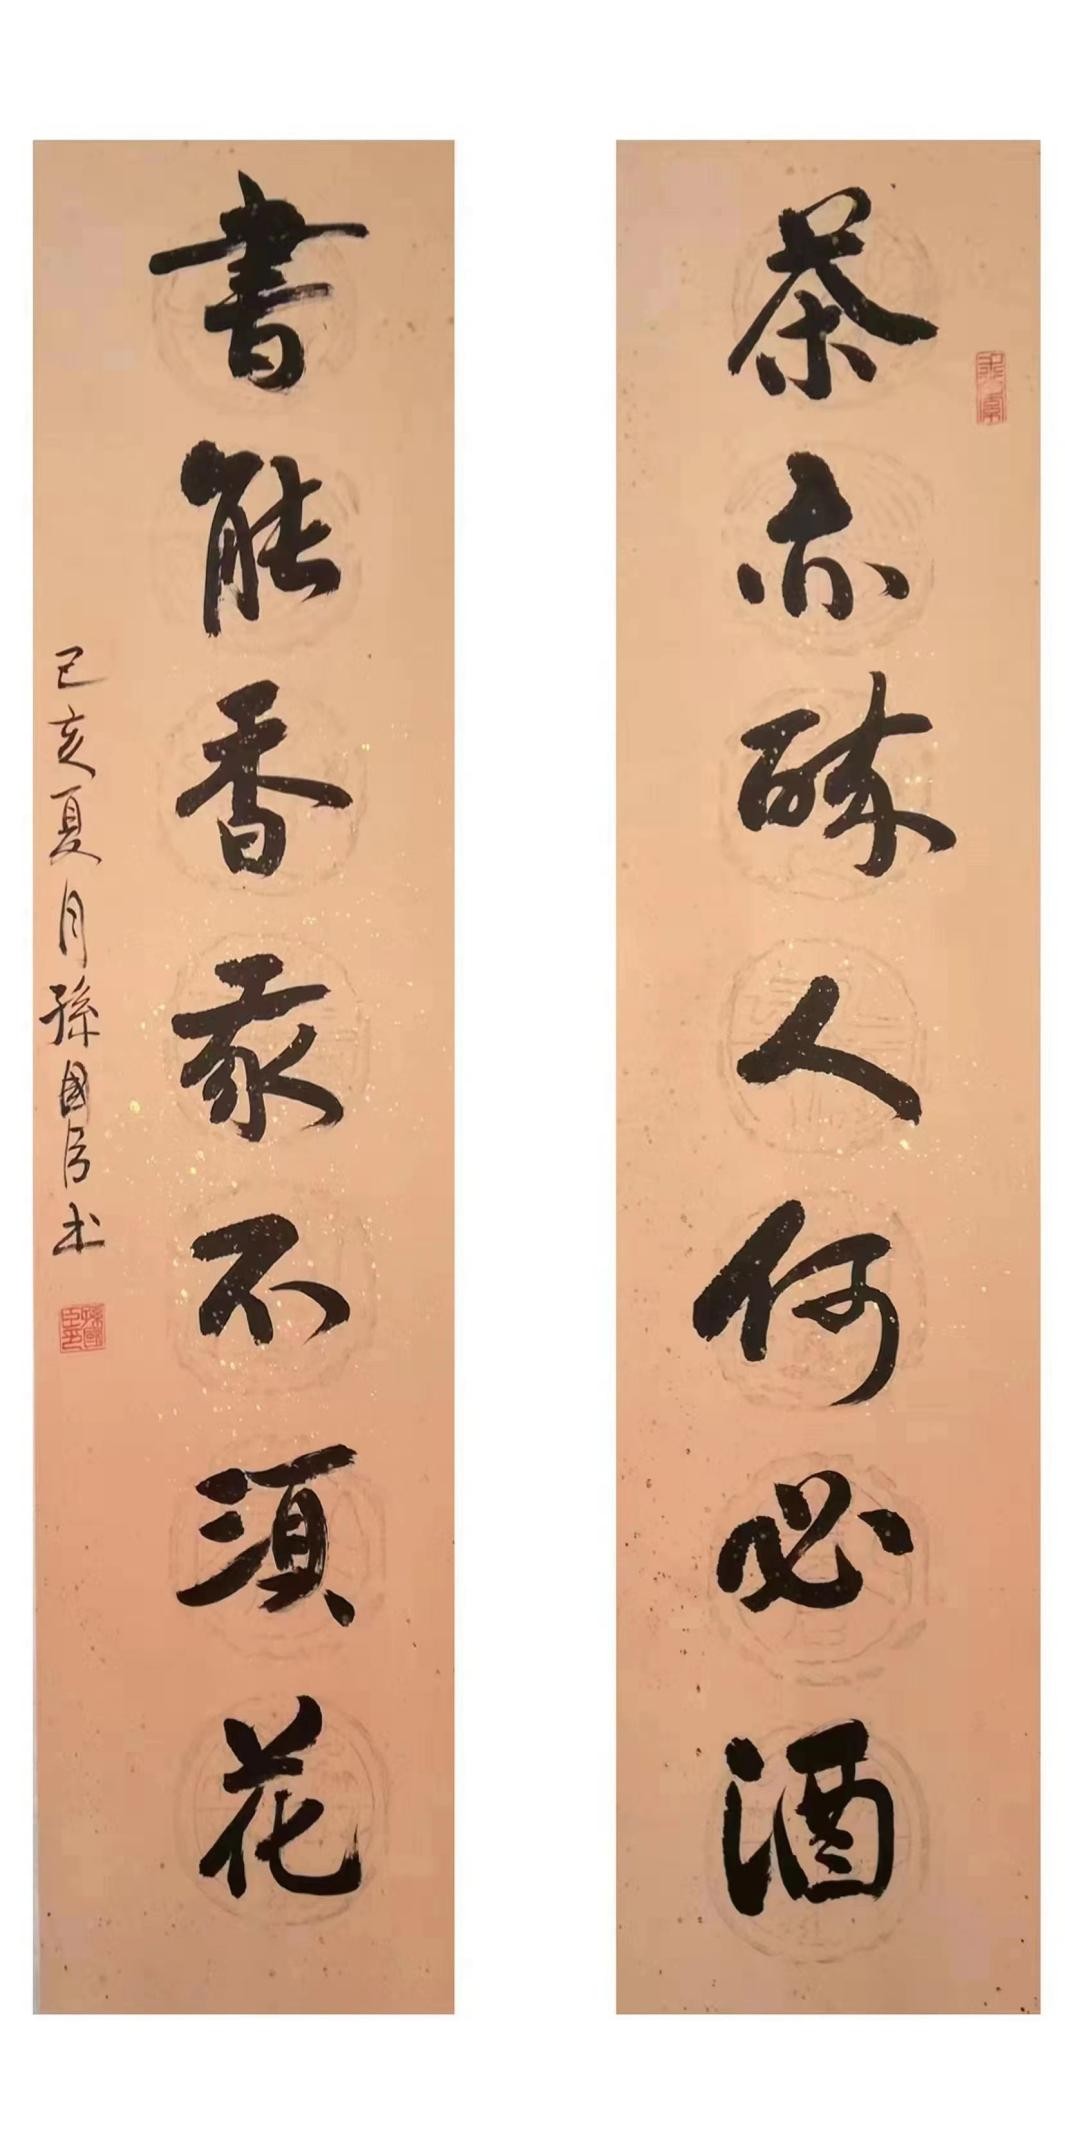 茶亦醉人何必酒
書能香我不須花
己亥夏月孫國居书